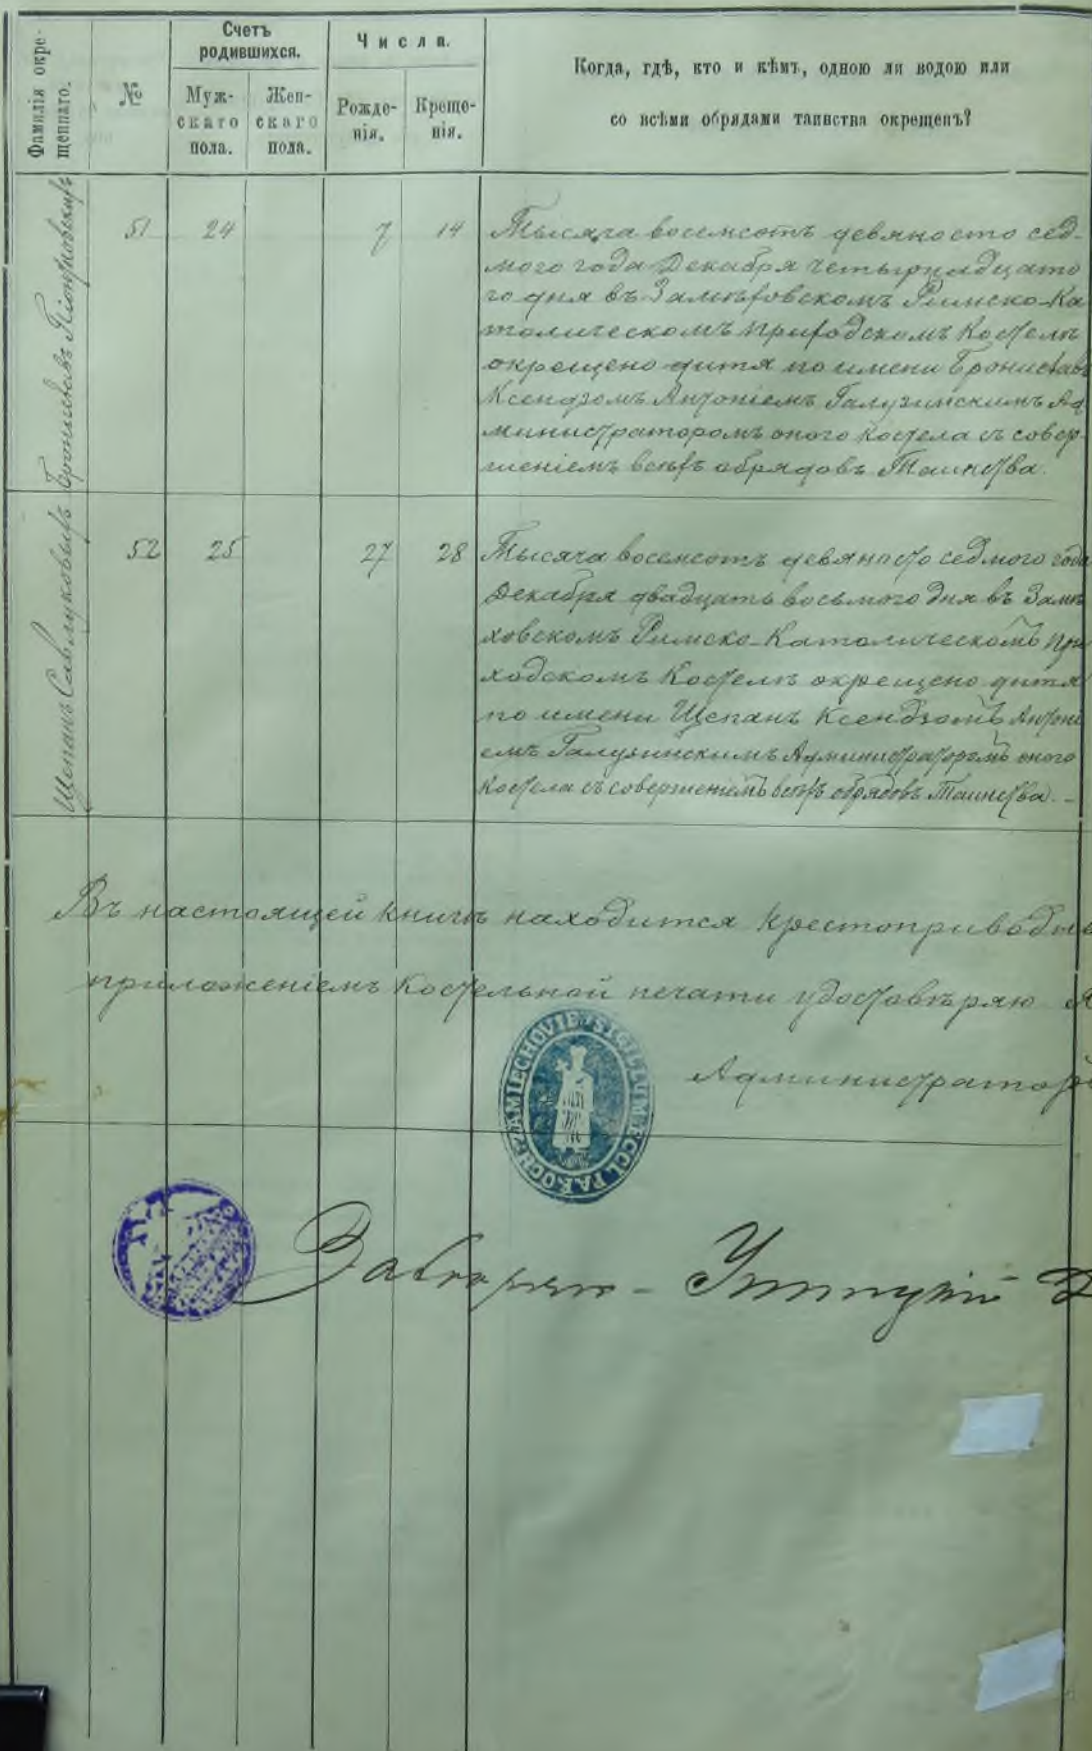 Фамилія окре-
щеннаго.
№
Счетъ
родившихся.
Муж-
скаго
пола.
Жен-
скаго
пола.
Числа.
Рожде-
нія.
Креще-
нія.
Когда, гдѣ, кто и кѣмъ, одною ли водою или
со всѣми обрядами таинства окрещенъ?
Брониславъ Піотровскій
51
24
7
14
Тысяча восемсотъ девяносто сед-
мого года Декабря четырнадцато
го дня въ Замѣховскомъ Римско-Ка
толическомъ приходскомъ Костелѣ
окрещено дитя по имени Брониславъ
Ксендзомъ Антоніемъ Галузинскимъ Ад
министраторомъ оного Костела съ совер-
шеніемъ всѣхъ обрядовъ Таинства.
Щепанъ
52
25
27
28
Тысяча восемсотъ девяносто седмого года
Декабря двадцать восьмого дня въ Замѣ
ховскомъ Римско-Католическомъ При
ходскомъ Костелѣ окрещено дитя
по имени Щепанъ Ксендзомъ Антоні
емъ Галузинскимъ Администраторомъ оного
Костела съ совершеніемъ всѣхъ обрядовъ Таинства. -
Въ настоящей книгѣ находится
приложеніемъ Костельной печати удостовѣряю
Администраторъ
SIGILLUM ECCL. PAROCH. ZAMIECHOVIE